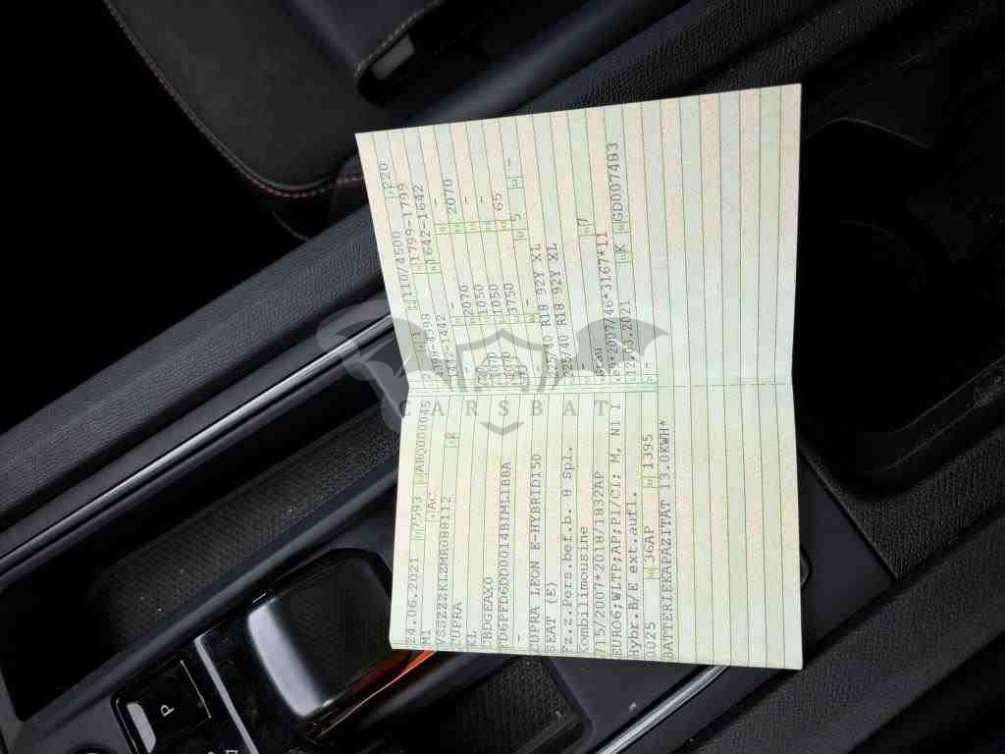 24.06.2021 7593 ABQ000045 110/4500 220
M1 AC 1799-1799
VSSZZZKLZMR088112 1442-1442 1642-1642
CUPRA - -
KL - 2070 2070
1050 -
1050 -
- 3750 65
CUPRA LEON E-HYBRID150 - 5 -
SEAT (E) 225/40 R18 92Y XL
Fz.z.Pers.bef.b. 8 Spl. 225/40 R18 92Y XL
Kombilimousine - 7
715/2007*2018/1832AP
EURO6;WLTP;AP;PI/CI; M, N1 I
Hybr.B/E ext.aufl. 12.03.2021 K GD007483
0025 36AP 1395 -
BATTERIEKAPAZITÄT 13.0KWH*
P
CARSBAT